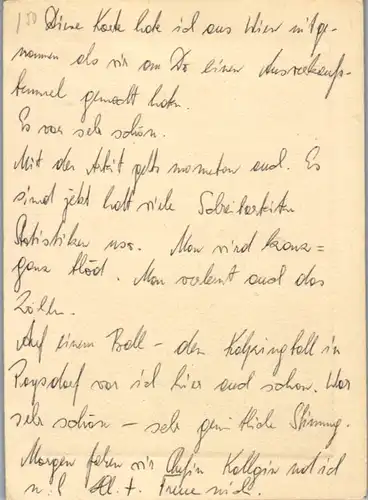 Diese Karte habe ich aus Wien mitge-
nommen als wir am Do einen Ausverkaufs-
bummel gemacht haben.
Es war sehr schön.
Mit der Arbeit gehts momentan auch. Es
sind jetzt halt viele Schreibarbeiten
Statistiken usw. Man wird ganz =
ganz blöd. Man verlernt auch das
Zählen.
Auf einem Ball – den Kolpingball in
Poysdorf war ich hier auch schon. War
sehr schön – sehr gemütliche Stimmung.
Morgen fahren wir Kollegin und ich